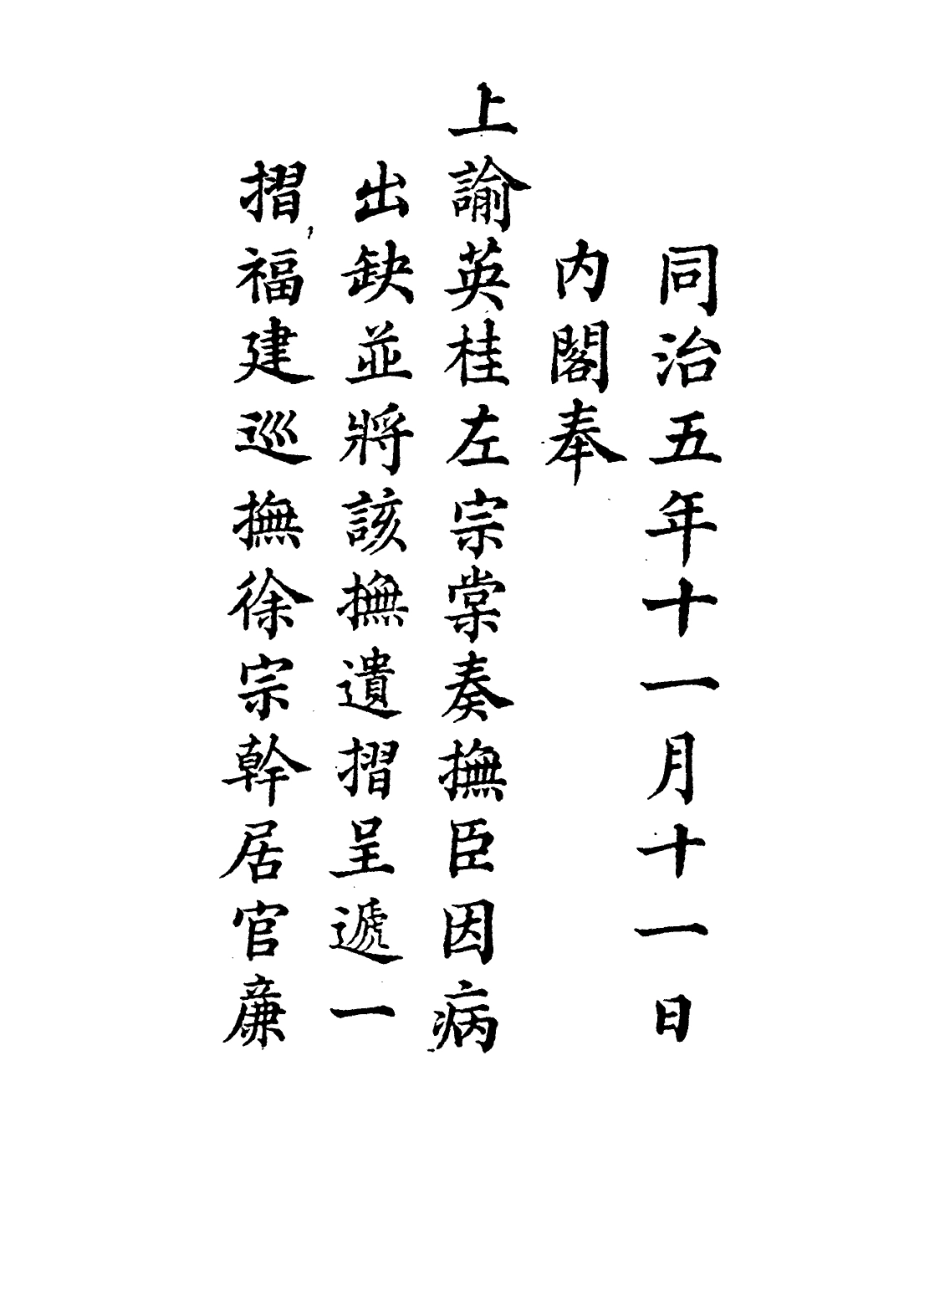 同治五年十一月十一日
内閣奉
上諭英桂左宗棠奏撫臣因病
出缺並將該撫遺摺呈遞一
摺福建巡撫徐宗幹居官廉